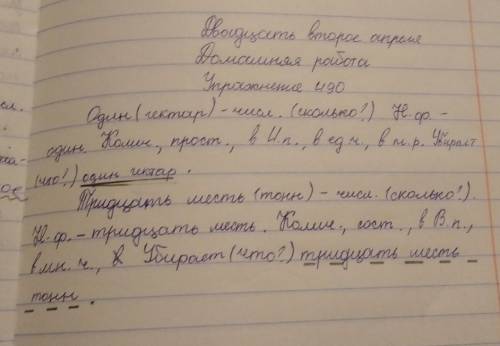 Двадцать второе апреля
Домашняя работа
Упражнение 490
Один (гектар) - числ. (сколько?) Н.ф. -
один. Колич., прост., в И.п., в ед.ч., в м.р. Убирает
(что?) один гктар.
Тридцать шесть (тонн) - числ. (сколько?).
Н.ф. - тридцать шесть. Колич., сост., в В.п.,
в мн. ч., Убирает (что?) тридцать шесть
тонн.